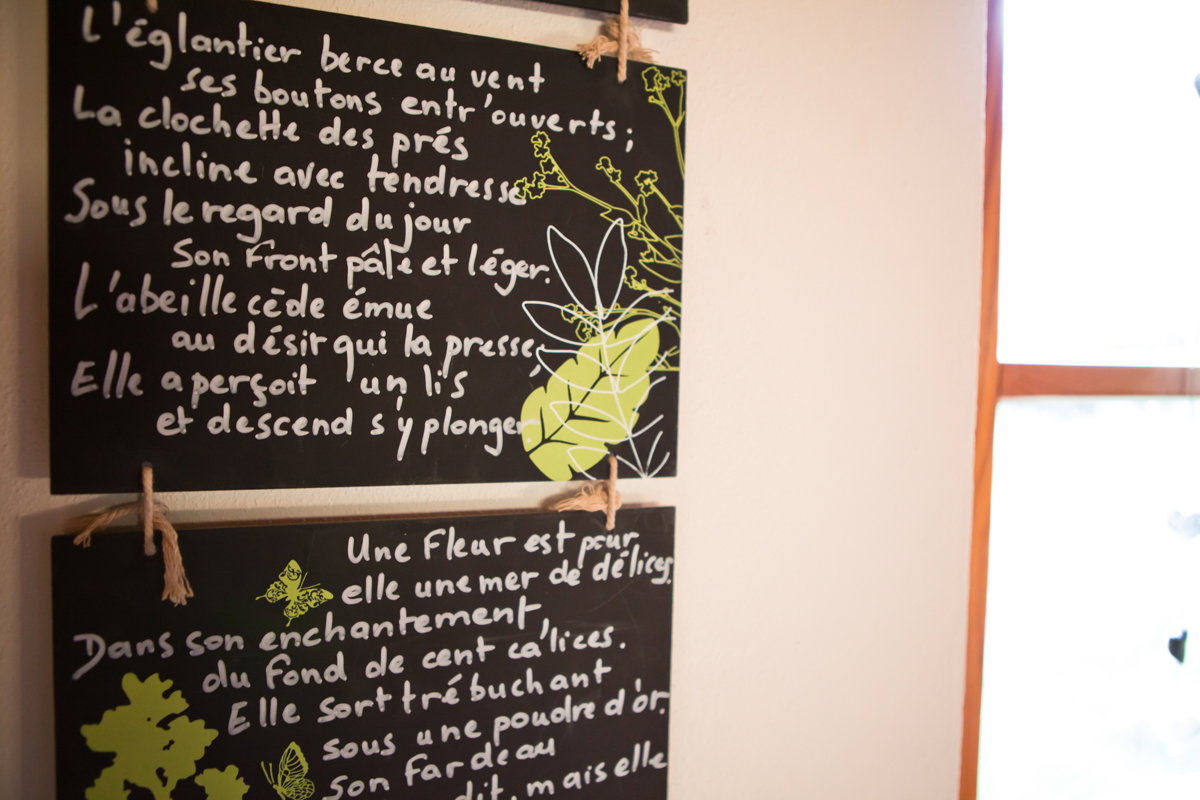 L'églantier berce au vent
ses boutons entr'ouverts;
La clochette des prés
incline avec tendresse
Sous le regard du jour
Son front pâle et léger.
L'abeille cède émue
au désir qui la presse,
Elle aperçoit un lis
et descend s'y plonger.
Une Fleur est pour
elle une mer de délices.
Dans son enchantement,
du fond de cent calices.
Elle sort trébuchant
sous une poudre d'or.
son fardeau
dit, mais elle